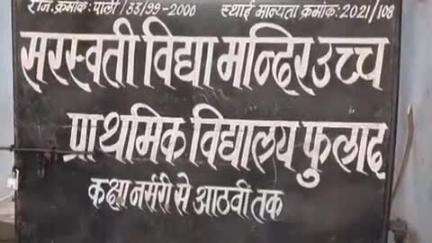 रजि.क्रमांक:पाली/33/99-2000 स्थाई मान्यता क्रमांक:2021/108
सरस्वती विद्या मन्दिर उच्च
प्राथमिक विद्यालय फुलाद
कक्षा नर्सरी से आठवी तक